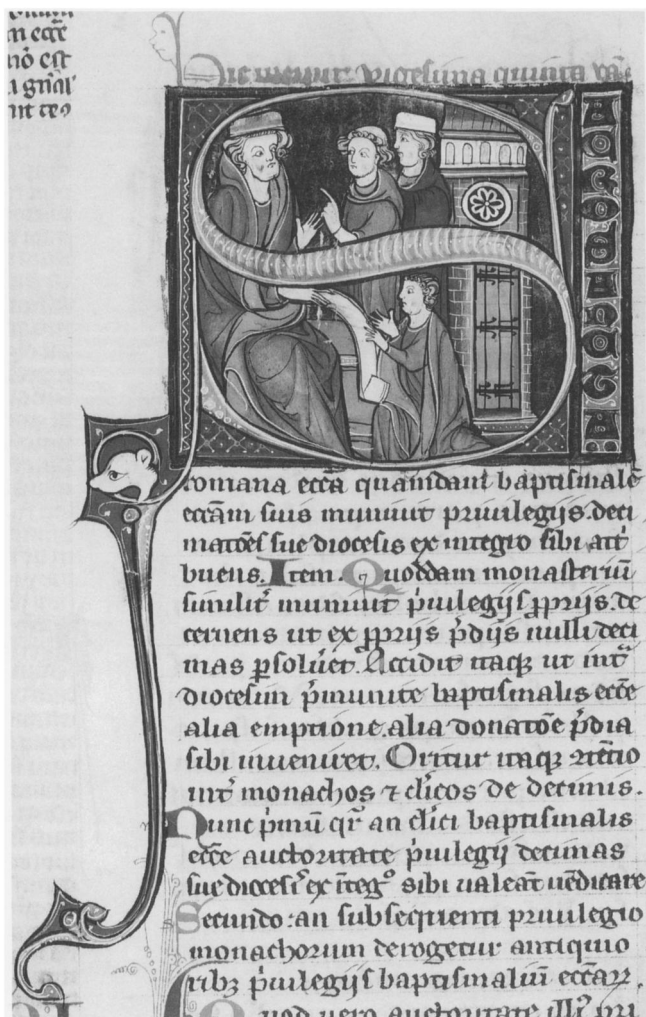 m ecce
nō est
uigesima quinta
romana ecc̄a quamdam baptismalē
ecc̄am suis muniuit priuilegijs. deci
matōes sue diocesis ex integro sibi att'
buens. Item. Quoddam monasteriū
similit' muniuit p'uilegijs ꝓprijs. de
cernens ut ex ꝓprijs p̄dijs nulli deci
mas ꝑsolu'et. Accidit itaqꝫ ut int̄
diocesim p̄munite baptismalis ecc̄e
alia emptione. alia donatōe p̄dia
sibi inueniret. Oritur itaqꝫ ↄtētio
int' monachos ⁊ cl'icos de decimis.
Nunc p'mū qr̄ an cl'ici baptismalis
ecc̄e auctoritate p'uilegij decimas
sue dioces' ex ītegº sibi ualeāt uēdicare
Secundo: an subsequenti priuilegio
monachorum derogetur antiquio
ribꝫ p'uilegijs baptismaliū ecc̄aꝝ.
Quod uero auctoritate illiꝰ pri